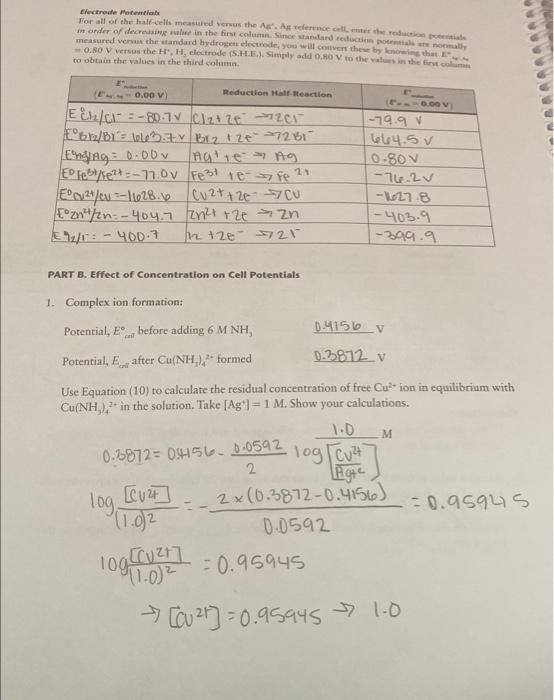 Electrode Potentials
For all of the half-cells measured versus the Ag⁺, Ag reference cell, enter the reduction potentials
in order of decreasing value in the first column. Since standard reduction potentials are normally
measured versus the standard hydrogen electrode, you will convert these by knowing that E°
= 0.80 V versus the H⁺, H₂ electrode (S.H.E.). Simply add 0.80 V to the values in the first column
to obtain the values in the third column.
E° reduction (E° Ag⁺,Ag = 0.00 V) Reduction Half-Reaction E° reduction (E° = 0.00 V)
E°Cl2/Cl⁻ = -80.7V Cl2+2e⁻ → 2Cl⁻ -79.9 V
E°Br2/Br⁻ = 663.7V Br2 +2e⁻ → 2Br⁻ 664.5 V
E°Ag/Ag = 0.00V Ag⁺+e⁻ → Ag 0.80V
E° Fe³⁺/Fe²⁺ = -77.0V Fe³⁺ +e⁻ → Fe²⁺ -76.2V
E°Cu²⁺/Cu = -1628.6 Cu²⁺ +2e⁻ → Cu -1627.8
E°Zn²⁺/Zn = -404.7 Zn²⁺ +2e → Zn -403.9
E°I2/I⁻ = -400.7 I2 +2e⁻ → 2I⁻ -399.9
PART B. Effect of Concentration on Cell Potentials
1. Complex ion formation:
Potential, E°cell before adding 6 M NH₃ 0.4156 V
Potential, Ecell after Cu(NH₃)₄²⁺ formed 0.3872 V
Use Equation (10) to calculate the residual concentration of free Cu²⁺ ion in equilibrium with
Cu(NH₃)₄²⁺ in the solution. Take [Ag⁺] = 1 M. Show your calculations.
1.0 M
0.3872 = 0.4156 - 0.0592/2 log [Cu²⁺/Ag⁺²]
log [Cu²⁺]/(1.0)² = - 2×(0.3872-0.4156)/0.0592 = 0.95945
log [Cu²⁺]/(1.0)² = 0.95945
→ [Cu²⁺] = 0.95945 → 1.0